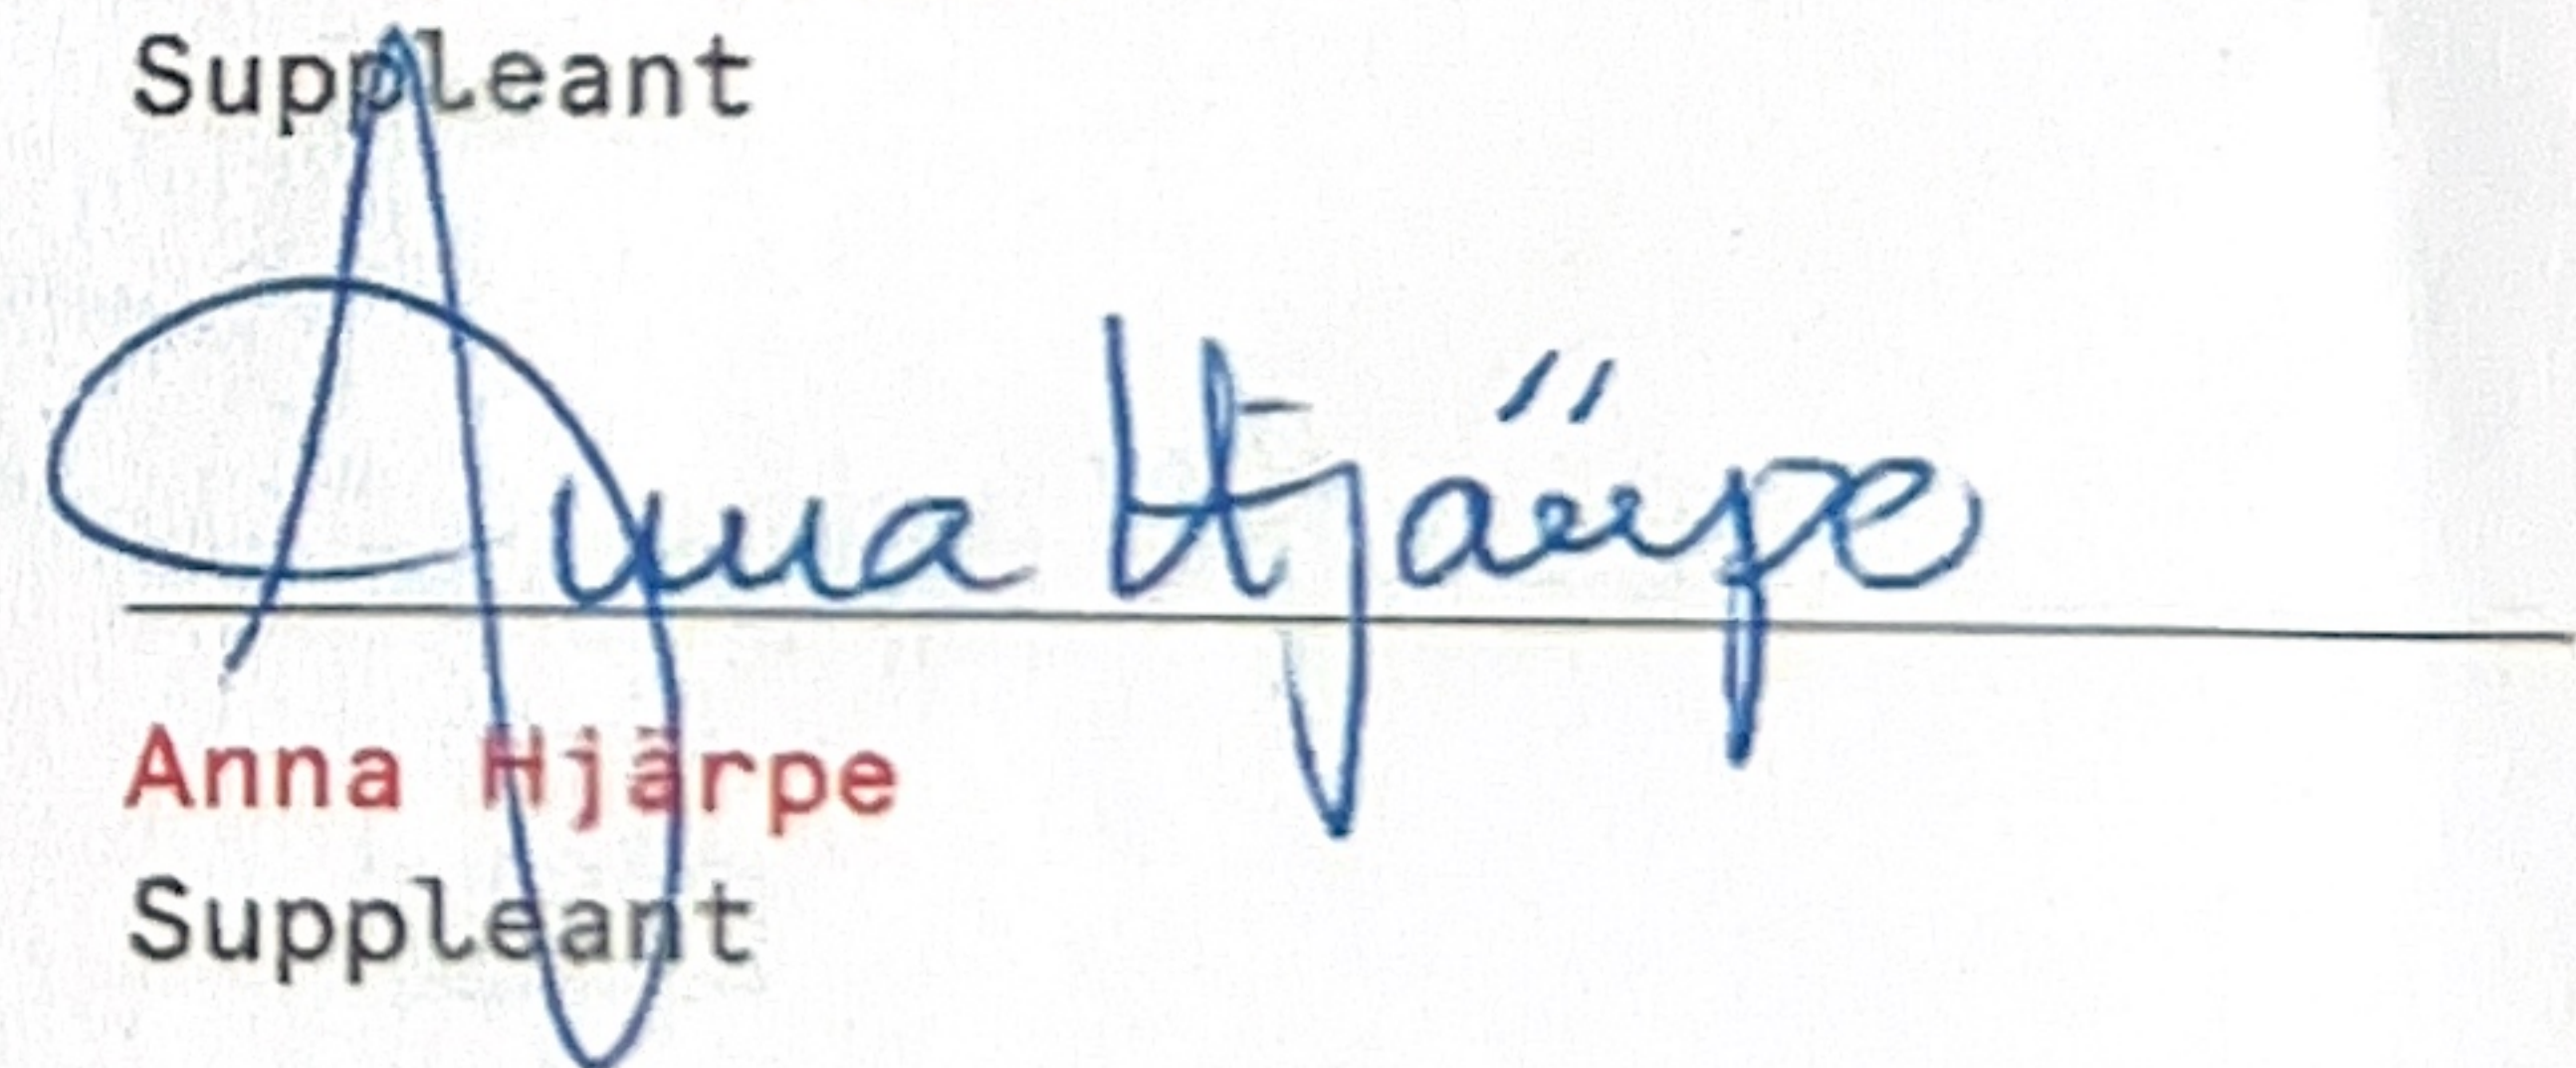 Suppleant
Anna Hjärpe
Anna Hjärpe
Suppleant